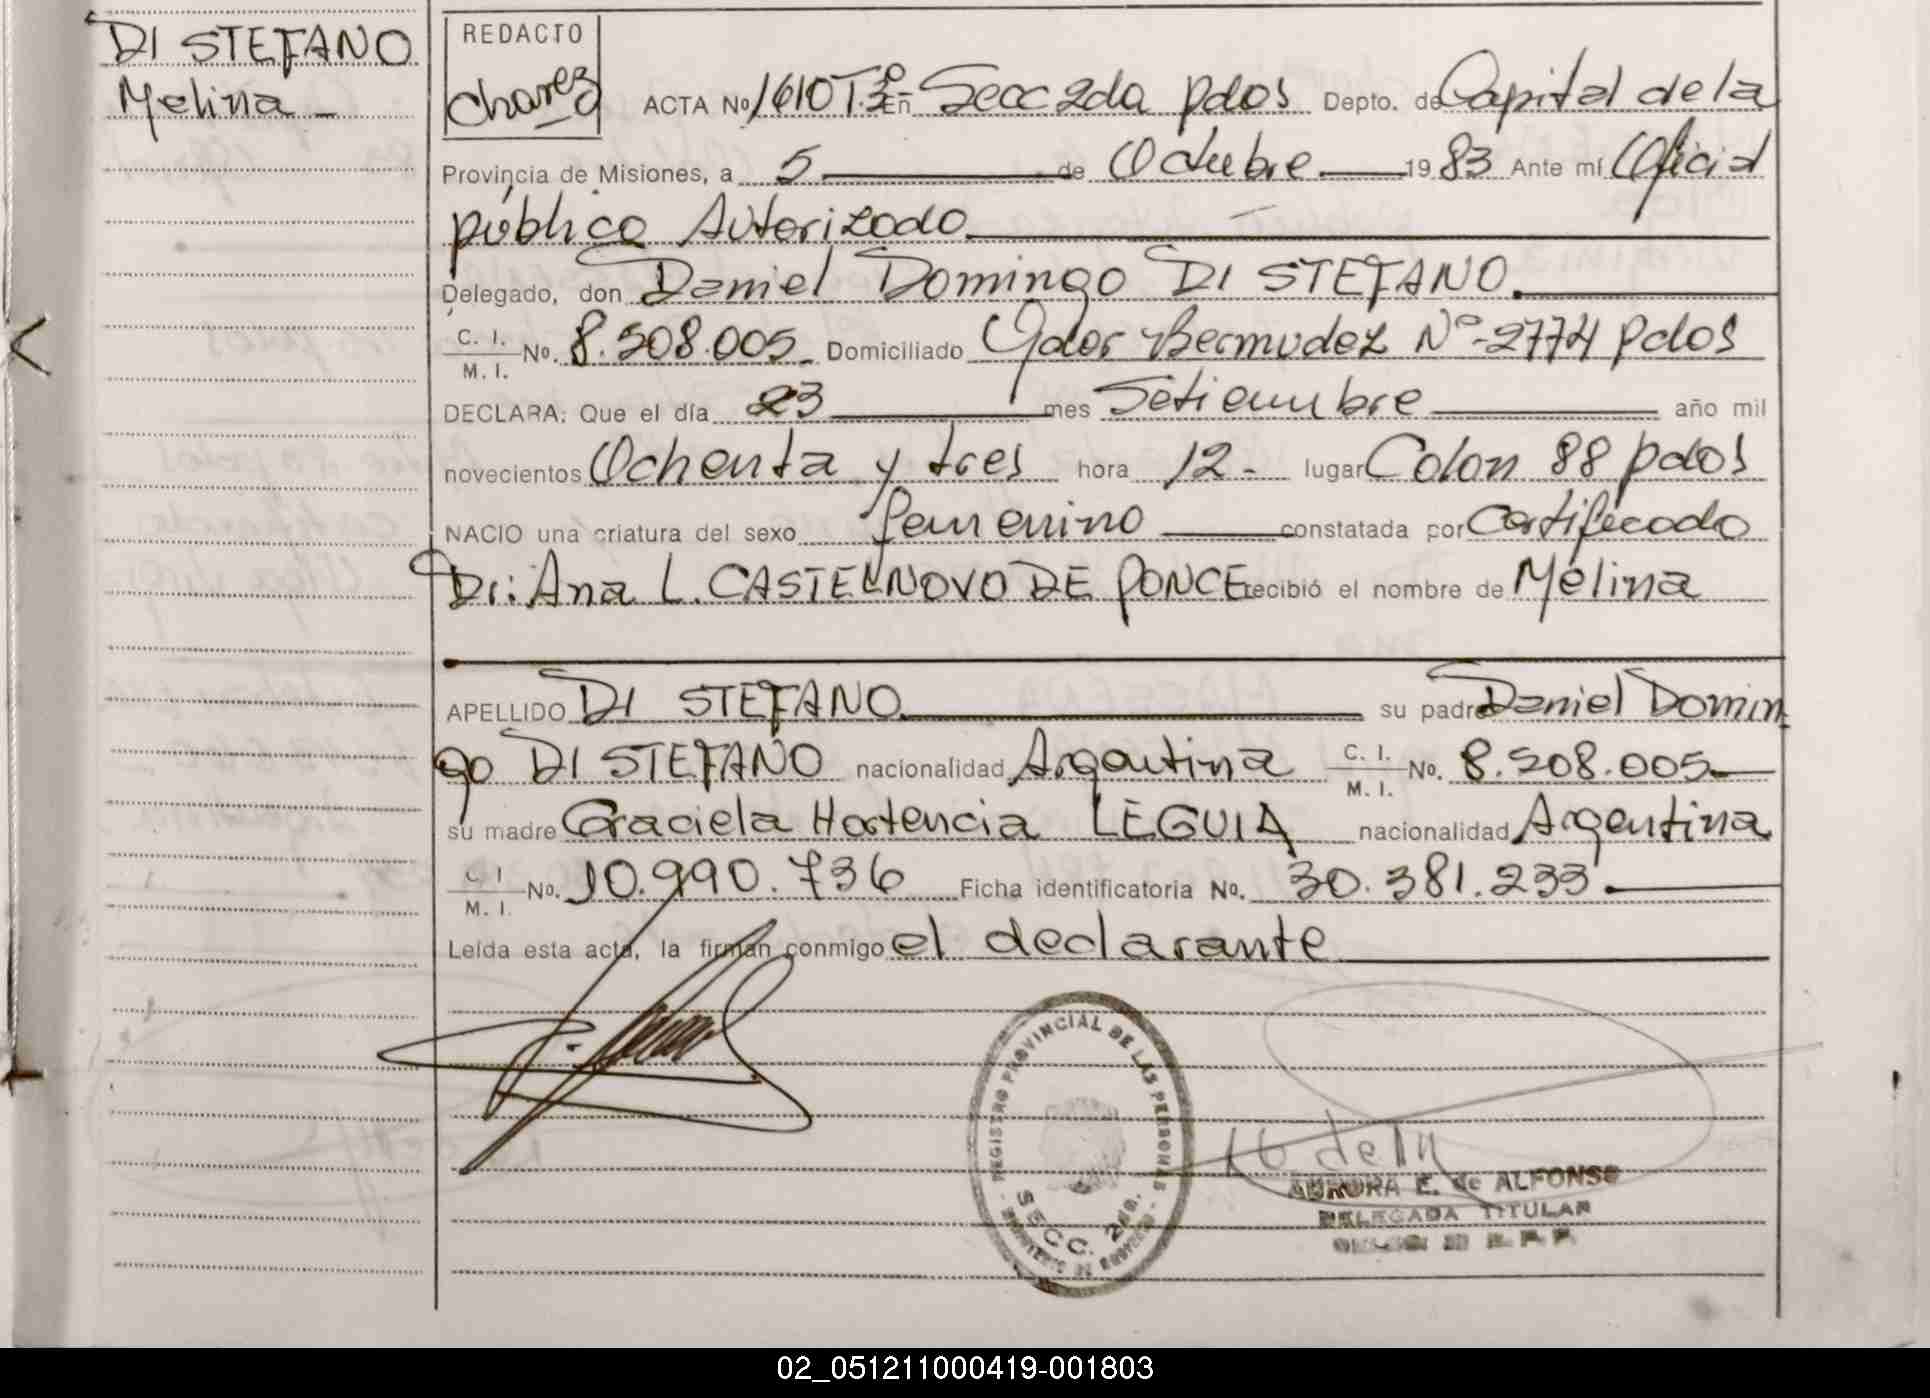 DI STEFANO
Melina -
REDACTO
Chavez
ACTA No 1610 T.3º En Secc 2da pdas Depto. de Capital de la
Provincia de Misiones, a 5 de Octubre 1983 Ante mí Oficial
público Autorizado
Delegado, don Daniel Domingo DI STEFANO.
C. I.
M. I. No. 8.508.005 Domiciliado Bermudez Nº 2774 pdas
DECLARA: Que el día 23 mes Setiembre año mil
novecientos Ochenta y tres hora 12 - lugar Colon 88 pdas
NACIO una criatura del sexo femenino constatada por Certificado
Dr: Ana L. CASTELNOVO DE PONCE recibió el nombre de Melina
APELLIDO DI STEFANO su padre Daniel Domin
go DI STEFANO nacionalidad Argentina C. I. M. I. No. 8.508.005
su madre Graciela Hortencia LEGUIA nacionalidad Argentina
C. I. M. I. No. 10.990.736 Ficha identificatoria No. 30.381.233
Leída esta acta, la firman conmigo el declarante
REGISTRO PROVINCIAL DE LAS PERSONAS
SECC. 2da.
AURORA E. de ALFONSO
DELEGADA TITULAR
02_051211000419-001803